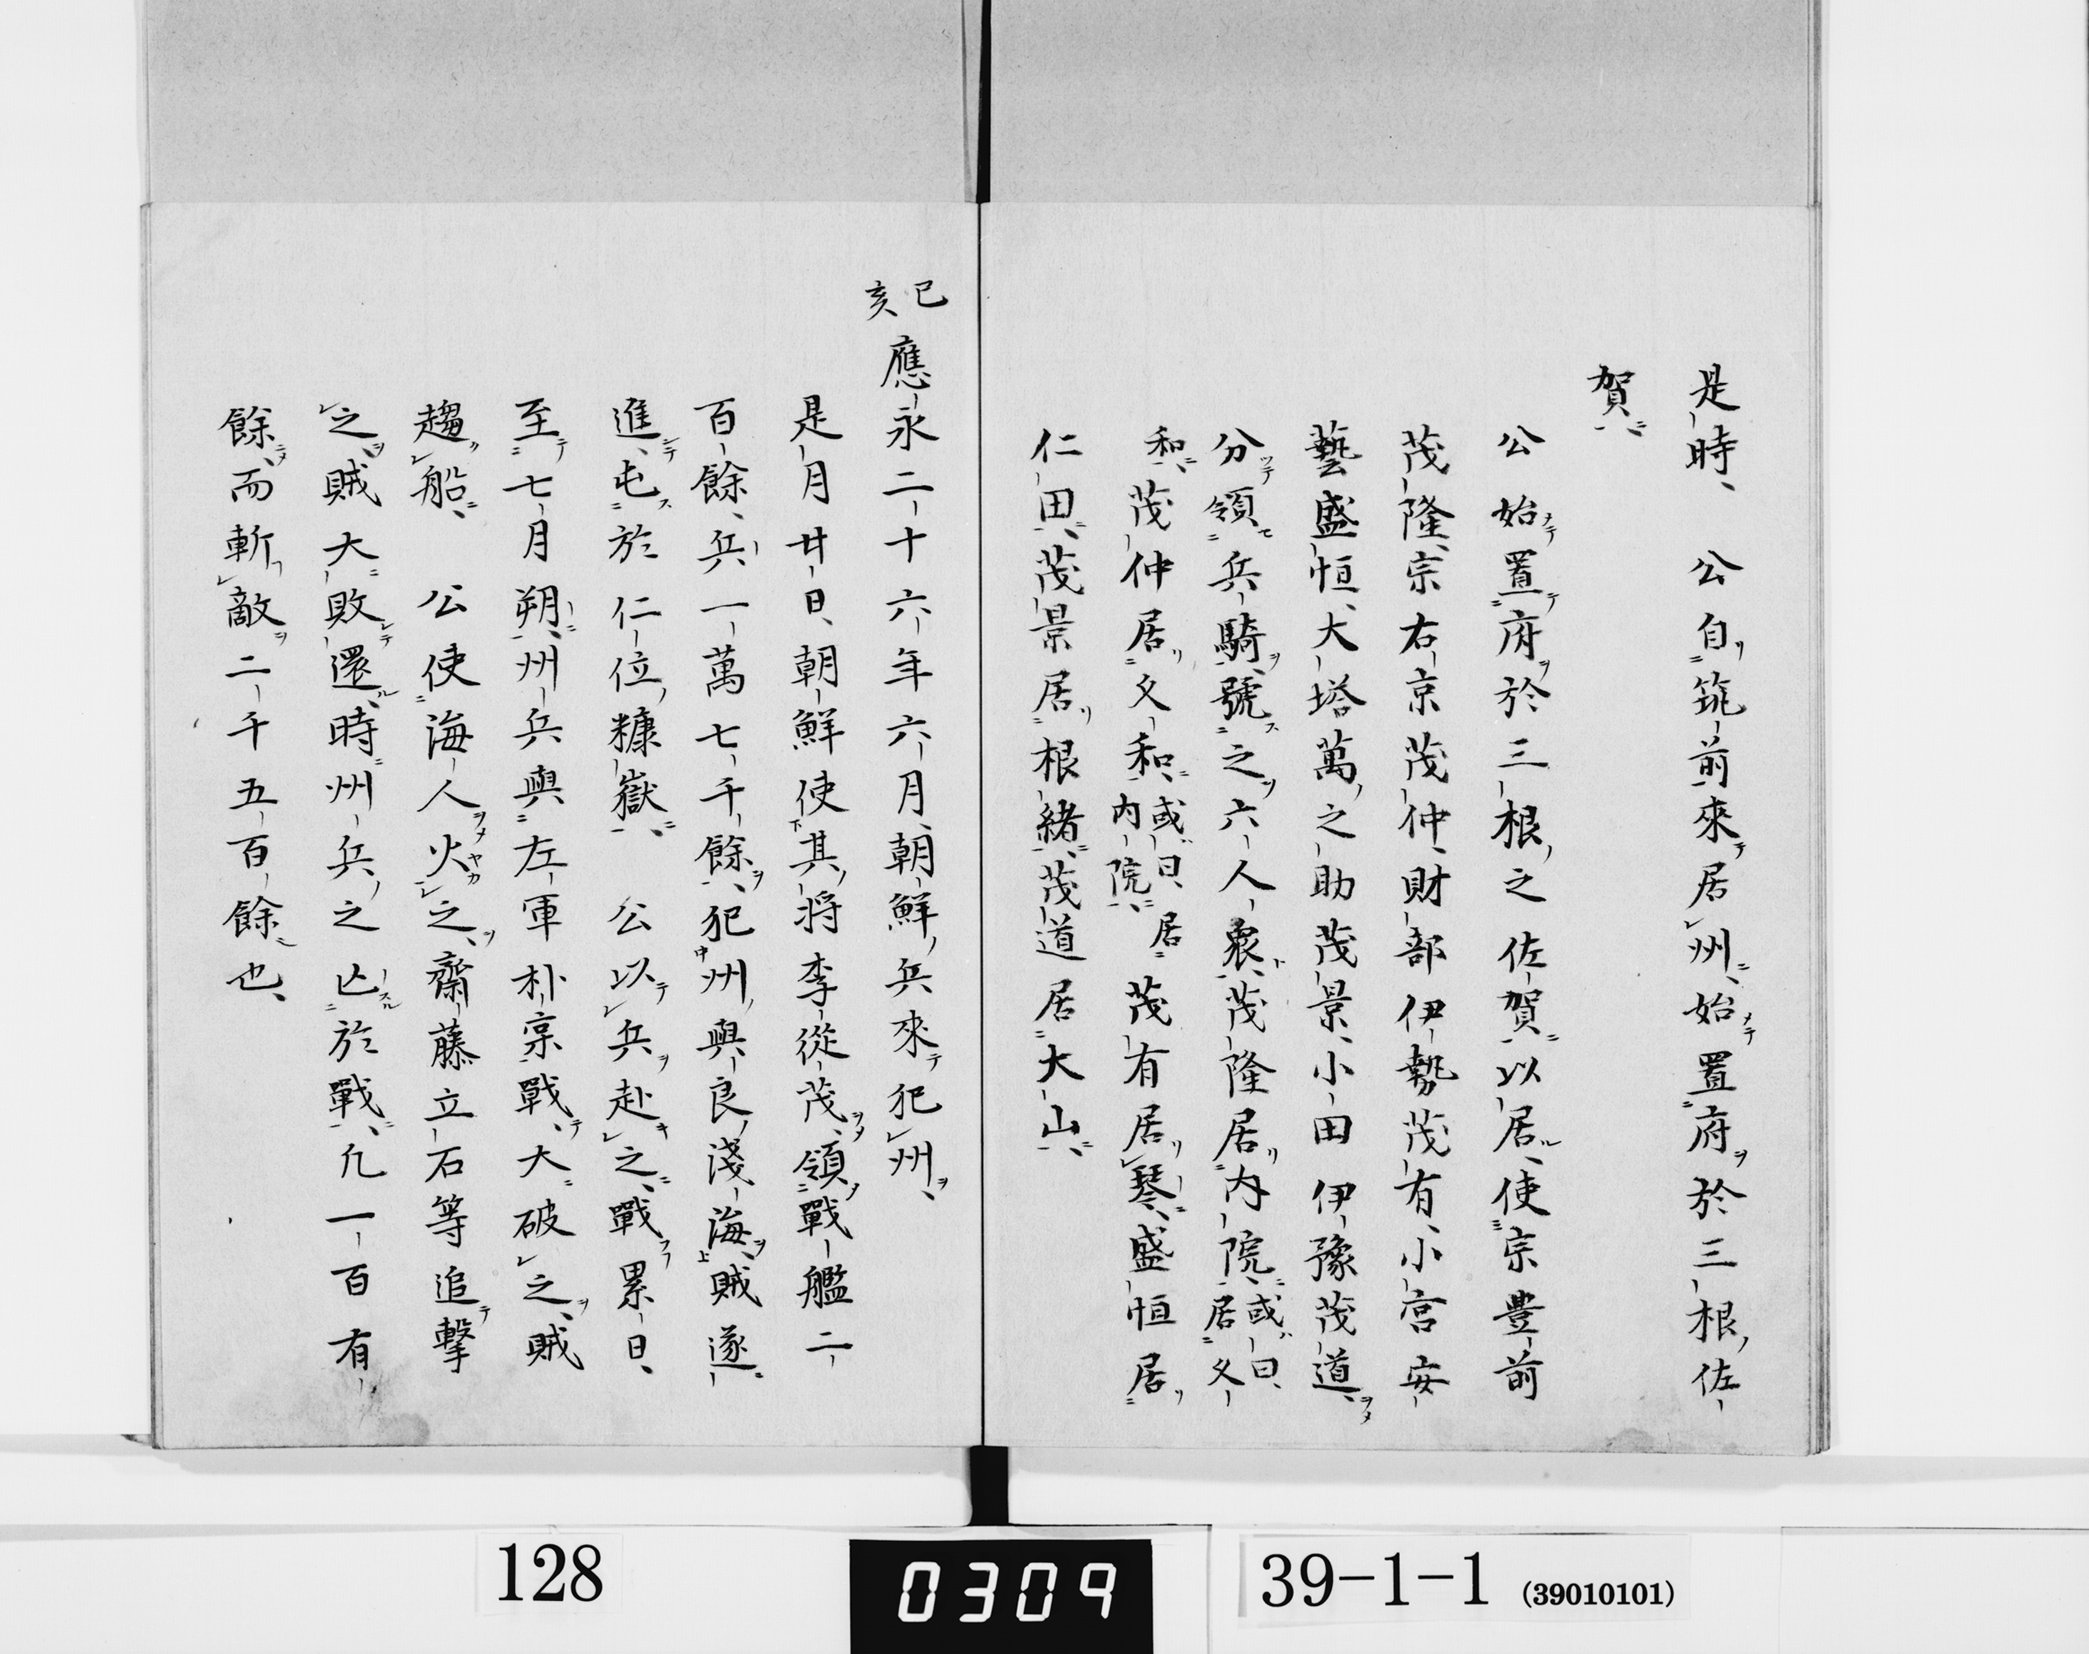 是時、公自筑前來居州、始置府於三根佐
賀、
公始置府於三根之佐賀、以居、使宗豊前
茂隆、宗右京茂仲、財部伊勢茂有、小宮安
藝盛恒、大塔萬之助茂景、小田伊豫茂道、
分領兵騎、號之六人衆、茂隆居内院、或曰、居久
和、茂仲居久和、或曰、居内院、茂有居琴、盛恒居
仁田、茂景居根緒、茂道居大山、
己亥
應永二十六年六月、朝鮮兵來犯州、
是月廿日、朝鮮使其將李從茂、領戰艦二
百餘、兵一萬七千餘、犯州與良淺海、賊遂
進、屯於仁位糠嶽、公以兵赴之、戰累日、
至七月朔、州兵與左軍朴宗戰、大破之、賊
趨船、公使海人火之、齋藤立石等追擊
之、賊大敗還、時州兵之亡於戰、凡一百有
餘、而斬敵二千五百餘也、
128
0309
39-1-1 (39010101)